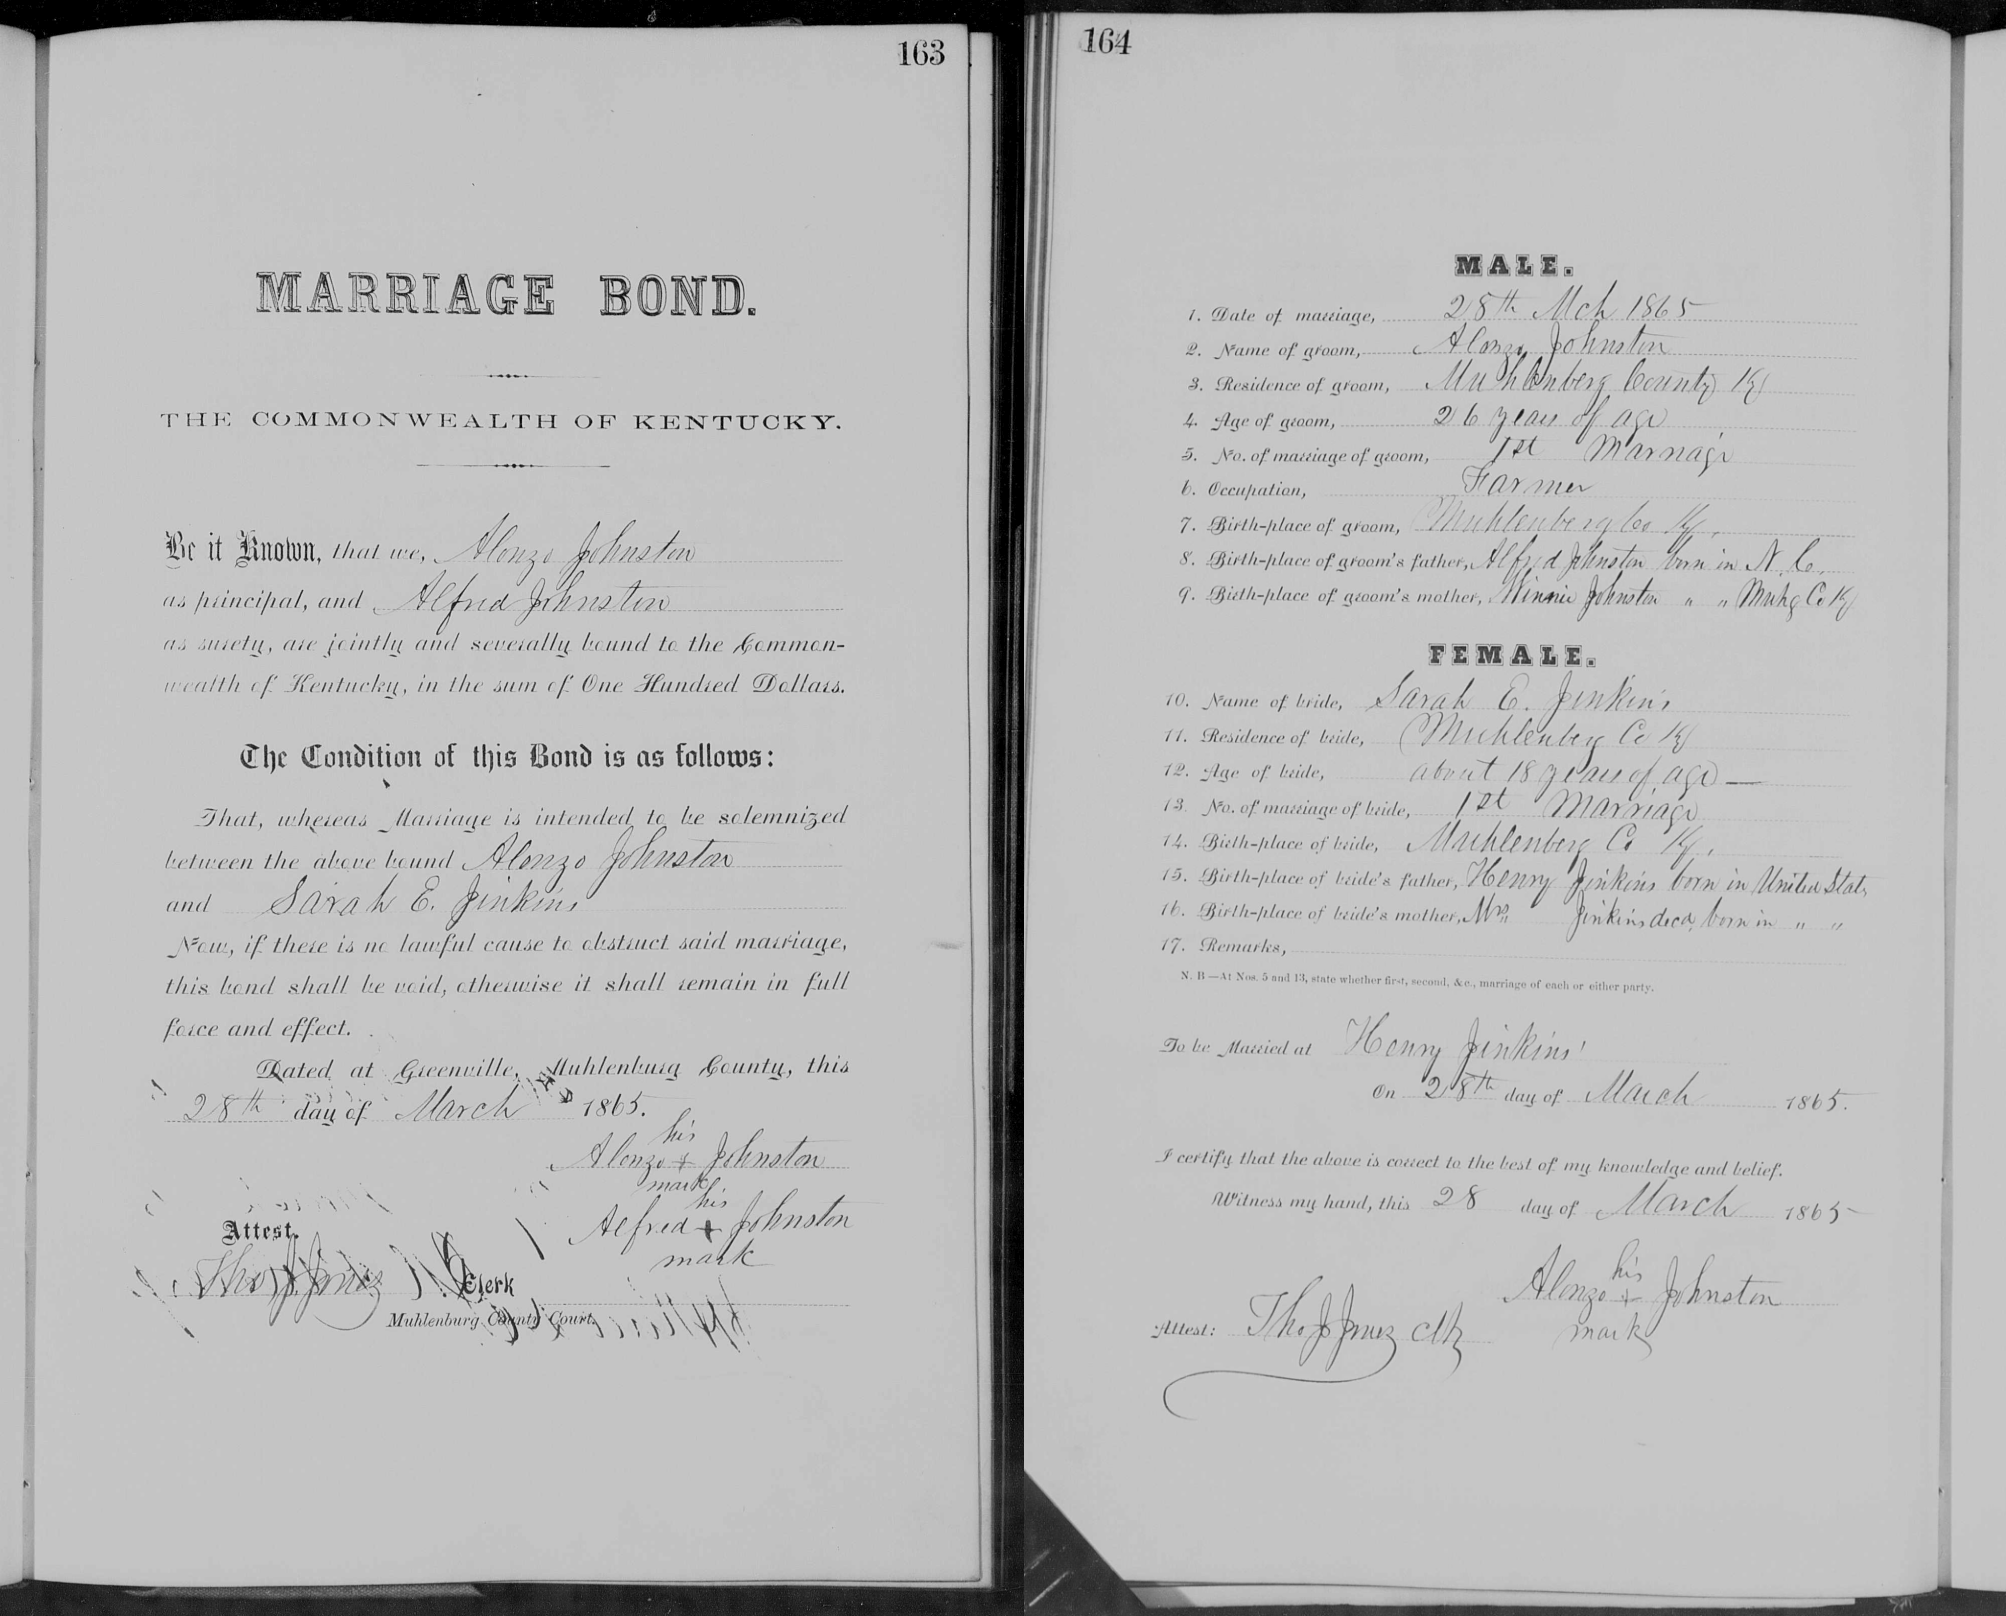 163
MARRIAGE BOND.
THE COMMONWEALTH OF KENTUCKY.
Be it Known, that we, Alonzo Johnston
as principal, and Alfred Johnston
as surety, are jointly and severally bound to the Common-
wealth of Kentucky, in the sum of One Hundred Dollars.
The Condition of this Bond is as follows:
That, whereas Marriage is intended to be solemnized
between the above bound Alonzo Johnston
and Sarah E. Jinkins
Now, if there is no lawful cause to obstruct said marriage,
this bond shall be void, otherwise it shall remain in full
force and effect.
Dated at Greenville, Muhlenburg County, this
28th day of March 1865.
his
Alonzo + Johnston
mark
his
Alfred + Johnston
mark
Attest.
Tho J. Jones Clerk
Muhlenburg County Court.
164
MALE.
1. Date of marriage, 28th Mch 1865
2. Name of groom, Alonzo Johnston
3. Residence of groom, Muhlenberg County Ky
4. Age of groom, 26 years of age
5. No. of marriage of groom, 1st Marriage
6. Occupation, Farmer
7. Birth-place of groom, Muhlenberg Co Ky.
8. Birth-place of groom's father, Alfred Johnston born in N. C.
9. Birth-place of groom's mother, Winnie Johnston " " Muhg Co Ky
FEMALE.
10. Name of bride, Sarah E. Jinkins
11. Residence of bride, Muhlenberg Co Ky
12. Age of bride, about 18 years of age —
13. No. of marriage of bride, 1st Marriage
14. Birth-place of bride, Muhlenberg Co Ky.
15. Birth-place of bride's father, Henry Jinkins born in United States
16. Birth-place of bride's mother, Mrs Jinkins decd, born in " "
17. Remarks,
N. B —At Nos. 5 and 13, state whether first, second, &c., marriage of each or either party.
To be Married at Henry Jinkins'
On 28th day of March 1865.
I certify that the above is correct to the best of my knowledge and belief.
Witness my hand, this 28 day of March 1865
his
Alonzo + Johnston
mark
Attest: Tho J Jones Clk